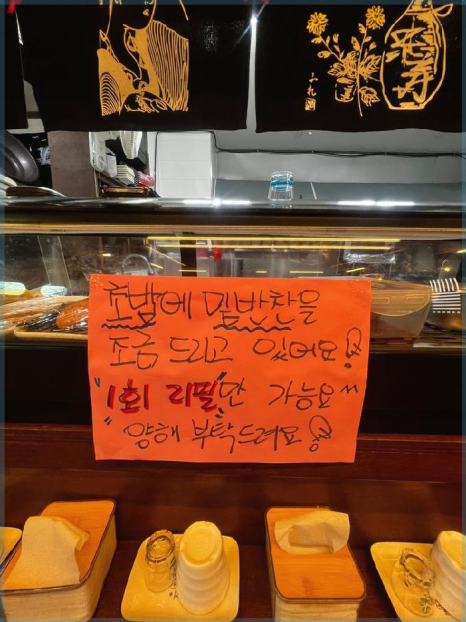 초밥에 밑반찬을
조금 드리고 있어요!
"1회 리필"만 가능요^^
양해 부탁드려요!